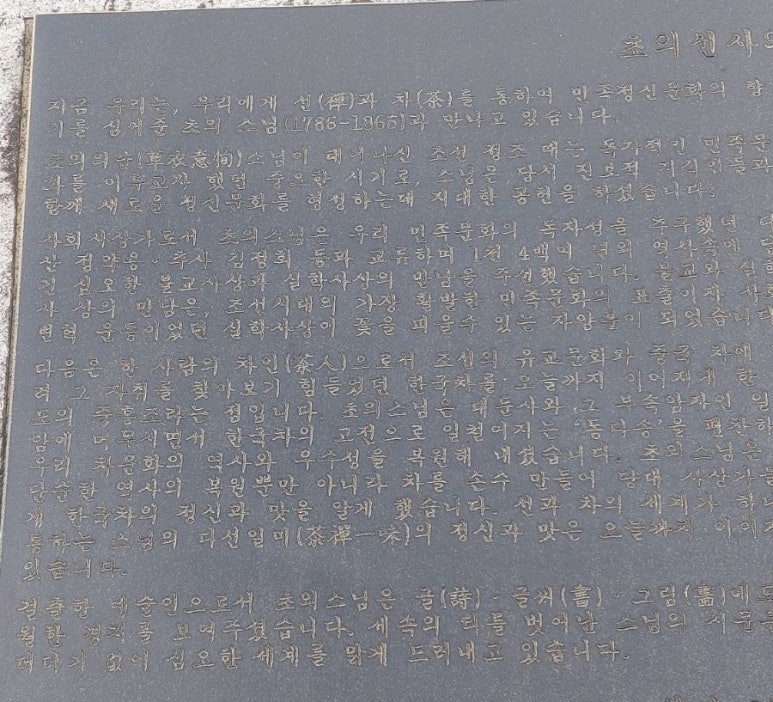 초의선사의
지금 우리는, 우리에게 선(禪)과 차(茶)를 통하여 민족정신문화의 향
기를 심어준 초의 스님(1786-1866)과 만나고 있습니다.
초의의순(草衣意恂)스님이 태어나신 조선 정조 때는 독자적인 민족문
화를 이루고자 했던 중요한 시기로, 스님은 당시 진보적 지식인들과
함께 새로운 정신문화를 형성하는데 지대한 공헌을 하셨습니다.
사회사상가로서 초의스님은 우리 민족문화의 독자성을 추구했던 다
산 정약용·추사 김정희 등과 교류하며 1천 4백여 년의 역사속에 담
긴 심오한 불교사상과 실학사상의 만남을 주선했습니다. 불교와 실학
사상의 만남은, 조선시대의 가장 활발한 민족문화의 표출이자 사회
변혁 운동이었던 실학사상이 꽃을 피울수 있는 자양분이 되었습니다
다음은 한 사람의 차인(茶人)으로서 조선의 유교문화와 중국 차에
려 그 자취를 찾아보기 힘들었던 한국차를 오늘까지 이어지게 한
도의 중흥조라는 점입니다. 초의스님은 대둔사와 그 부속암자인 일
암에 머무시면서 한국차의 고전으로 일컬어지는 '동다송'을 편찬하
우리 차문화의 역사와 우수성을 복원해 내셨습니다. 초의스님은
단순한 역사의 복원뿐만 아니라 차를 손수 만들어 당대 사상가들
게 한국차의 정신과 맛을 알게 했습니다. 선과 차의 세계가 하나
통하는 스님의 다선일미(茶禪一味)의 정신과 맛은 오늘까지 이어지
있습니다.
걸출한 예술인으로서 초의스님은 글(詩)·글씨(書)·그림(畵)에도
월한 경지를 보여주셨습니다. 세속의 티를 벗어난 스님의 시문은
더대기 없이 심오한 세계를 맑게 드러내고 있습니다.